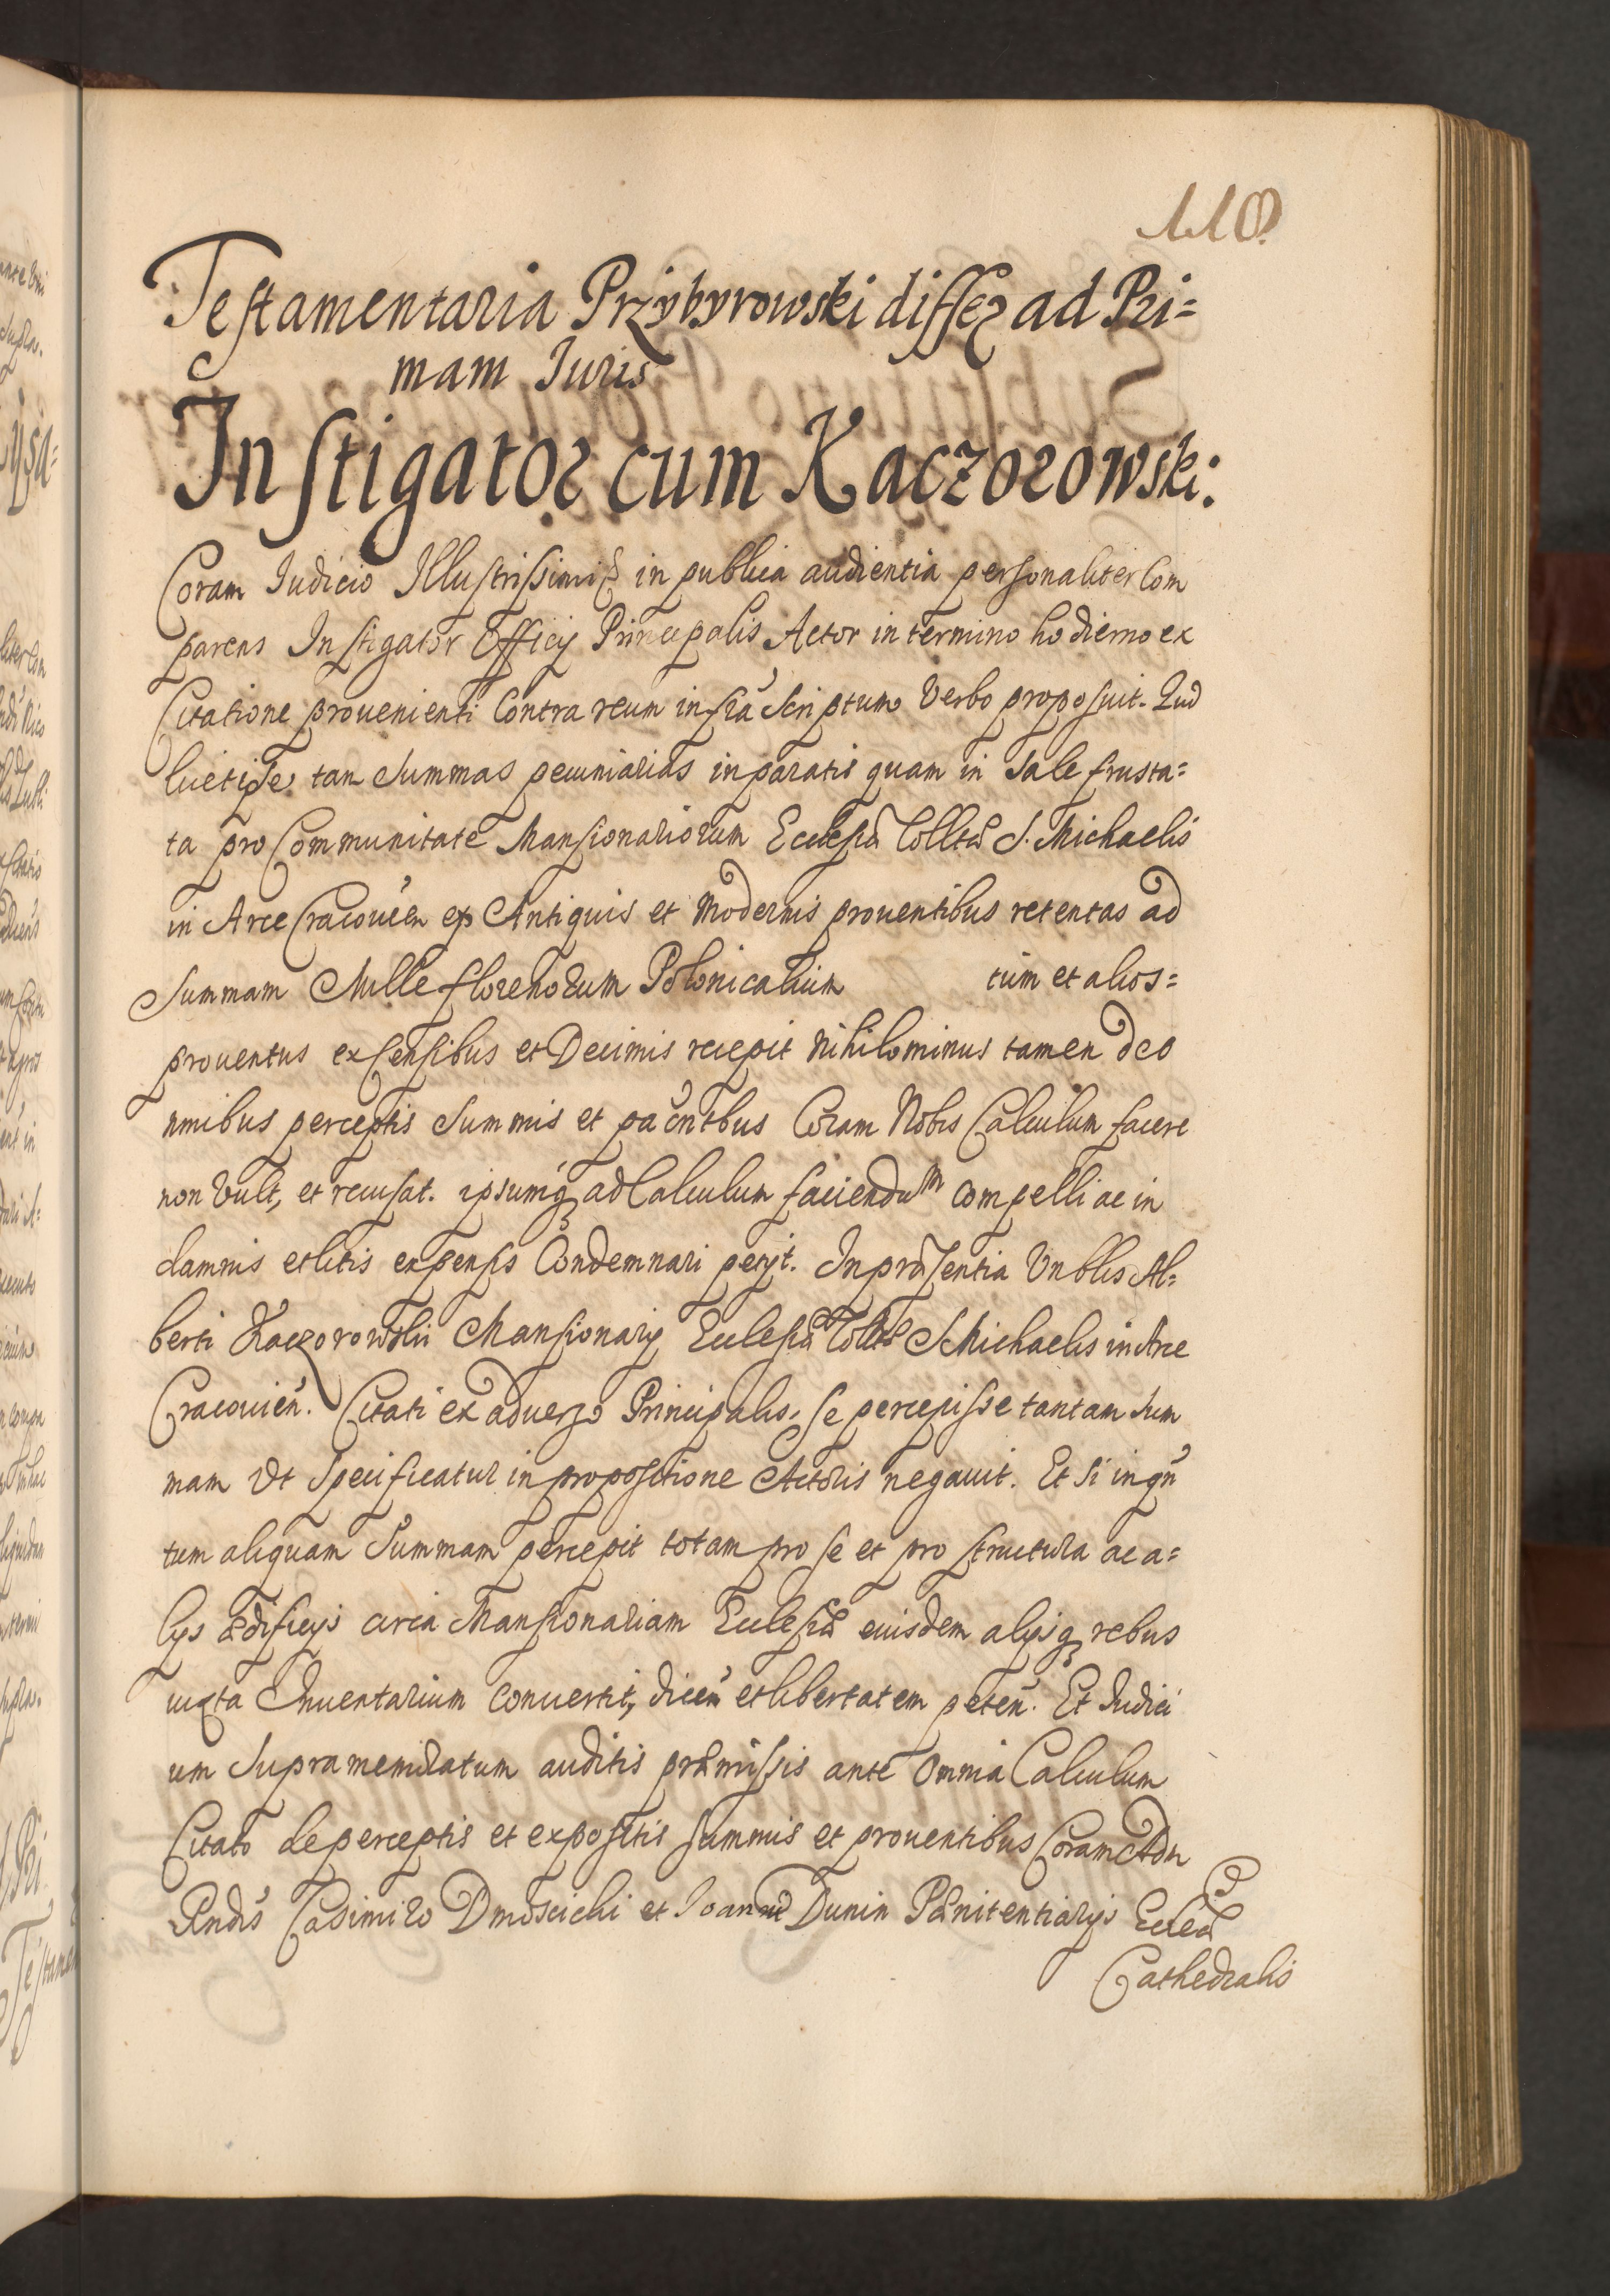 118.
Testamentaria Przybyrowski differ ad Pri=
mam Iuris
Instigator cum Kaczorowski:
Coram Iudicio Illustrissimi in publica audientia personaliter Com
parens Instigator Officij Principalis Actor in termino hodierno ex
Citatione prouenienti Contra reum infrà Scriptum Verbo proposuit. Qud
licet ipse tam Summas pecuniarias inparatis quam in Sale frusta=
ta pro Communitate Mansionariorum Ecclesiæ Colltæ S. Michaelis
in Arce Cracouien ex Antiquis et Modernis prouentibus retentas ad
Summam Mille florenorum Polonicalium tum et alios=
prouentus ex Censibus et Decimis recepit Nihilominus tamen deo
mnibus perceptis Summis et Coram Nobis Calculum facere
non Vult, et recusat. ipsumq ad Calculum faciendum compelli ac in
damnis et litis expensis Condemnari petijt. In præsentia Vnblis Al=
berti Kaczorowskii Mansionarij Ecclesiæ Colltæ S Michaelis in Arce
Cracouien. Citati ex aduerso Principalis. Se percepisse tantam Sum
mam Vt Specificatur in propositione Actoris negauit. Et Si inqn
tum aliquam Summam percepit totam pro se et pro structura ac a=
lijs ædificijs circa Mansionariam Ecclesiæ eiusdem alijsq rebus
iuxta Inuentarium conuertit, dicen et libertatem peten. Et Iudici
um Supramemoratum auditis præmissis ante Omnia Calculum
Citato de perceptis et expositis summis et prouentibus Coram Adn
Rndis Casimiro Dmoscichi et Joanne Dunin Pænitentiarijs Eccleæ
Cathedralis